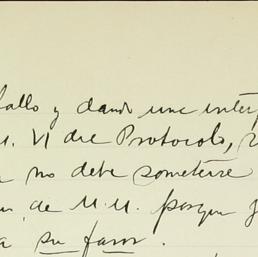 fallo y dando una inter
VI del Protocolo,
no debe someterse
de U.U. porque
a su favor.